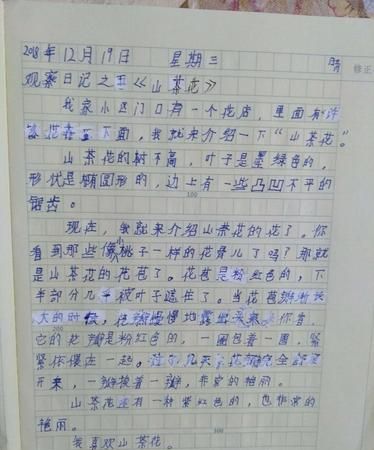 2018年12月19日 星期三 晴
修正
观察日记之五《山茶花》
我家小区门口有一个花店，里面有许
面，我就来介绍一下“山茶花”。
山茶花的树不高，叶子是墨绿色的，
形状是椭圆形的，边上有一些凸凹不平的
100
锯齿。
现在，我就来介绍山茶花的花了。你
看到那些像小桃子一样的花骨儿了吗？那就
是山茶花的花苞了。花苞是粉红色的，下
半部分几乎被叶子遮住了。当花苞渐渐长
大的时候，慢慢地露出来。你看，
200
它的花瓣是粉红色的，一圈包着一圈，紧
紧依偎在一起。过了几天，花瓣完全舒展
开来，一瓣挨着一瓣，非常的艳丽。
山茶花还有一种紫红色的，也非常的
艳丽。
300
我喜欢山茶花。